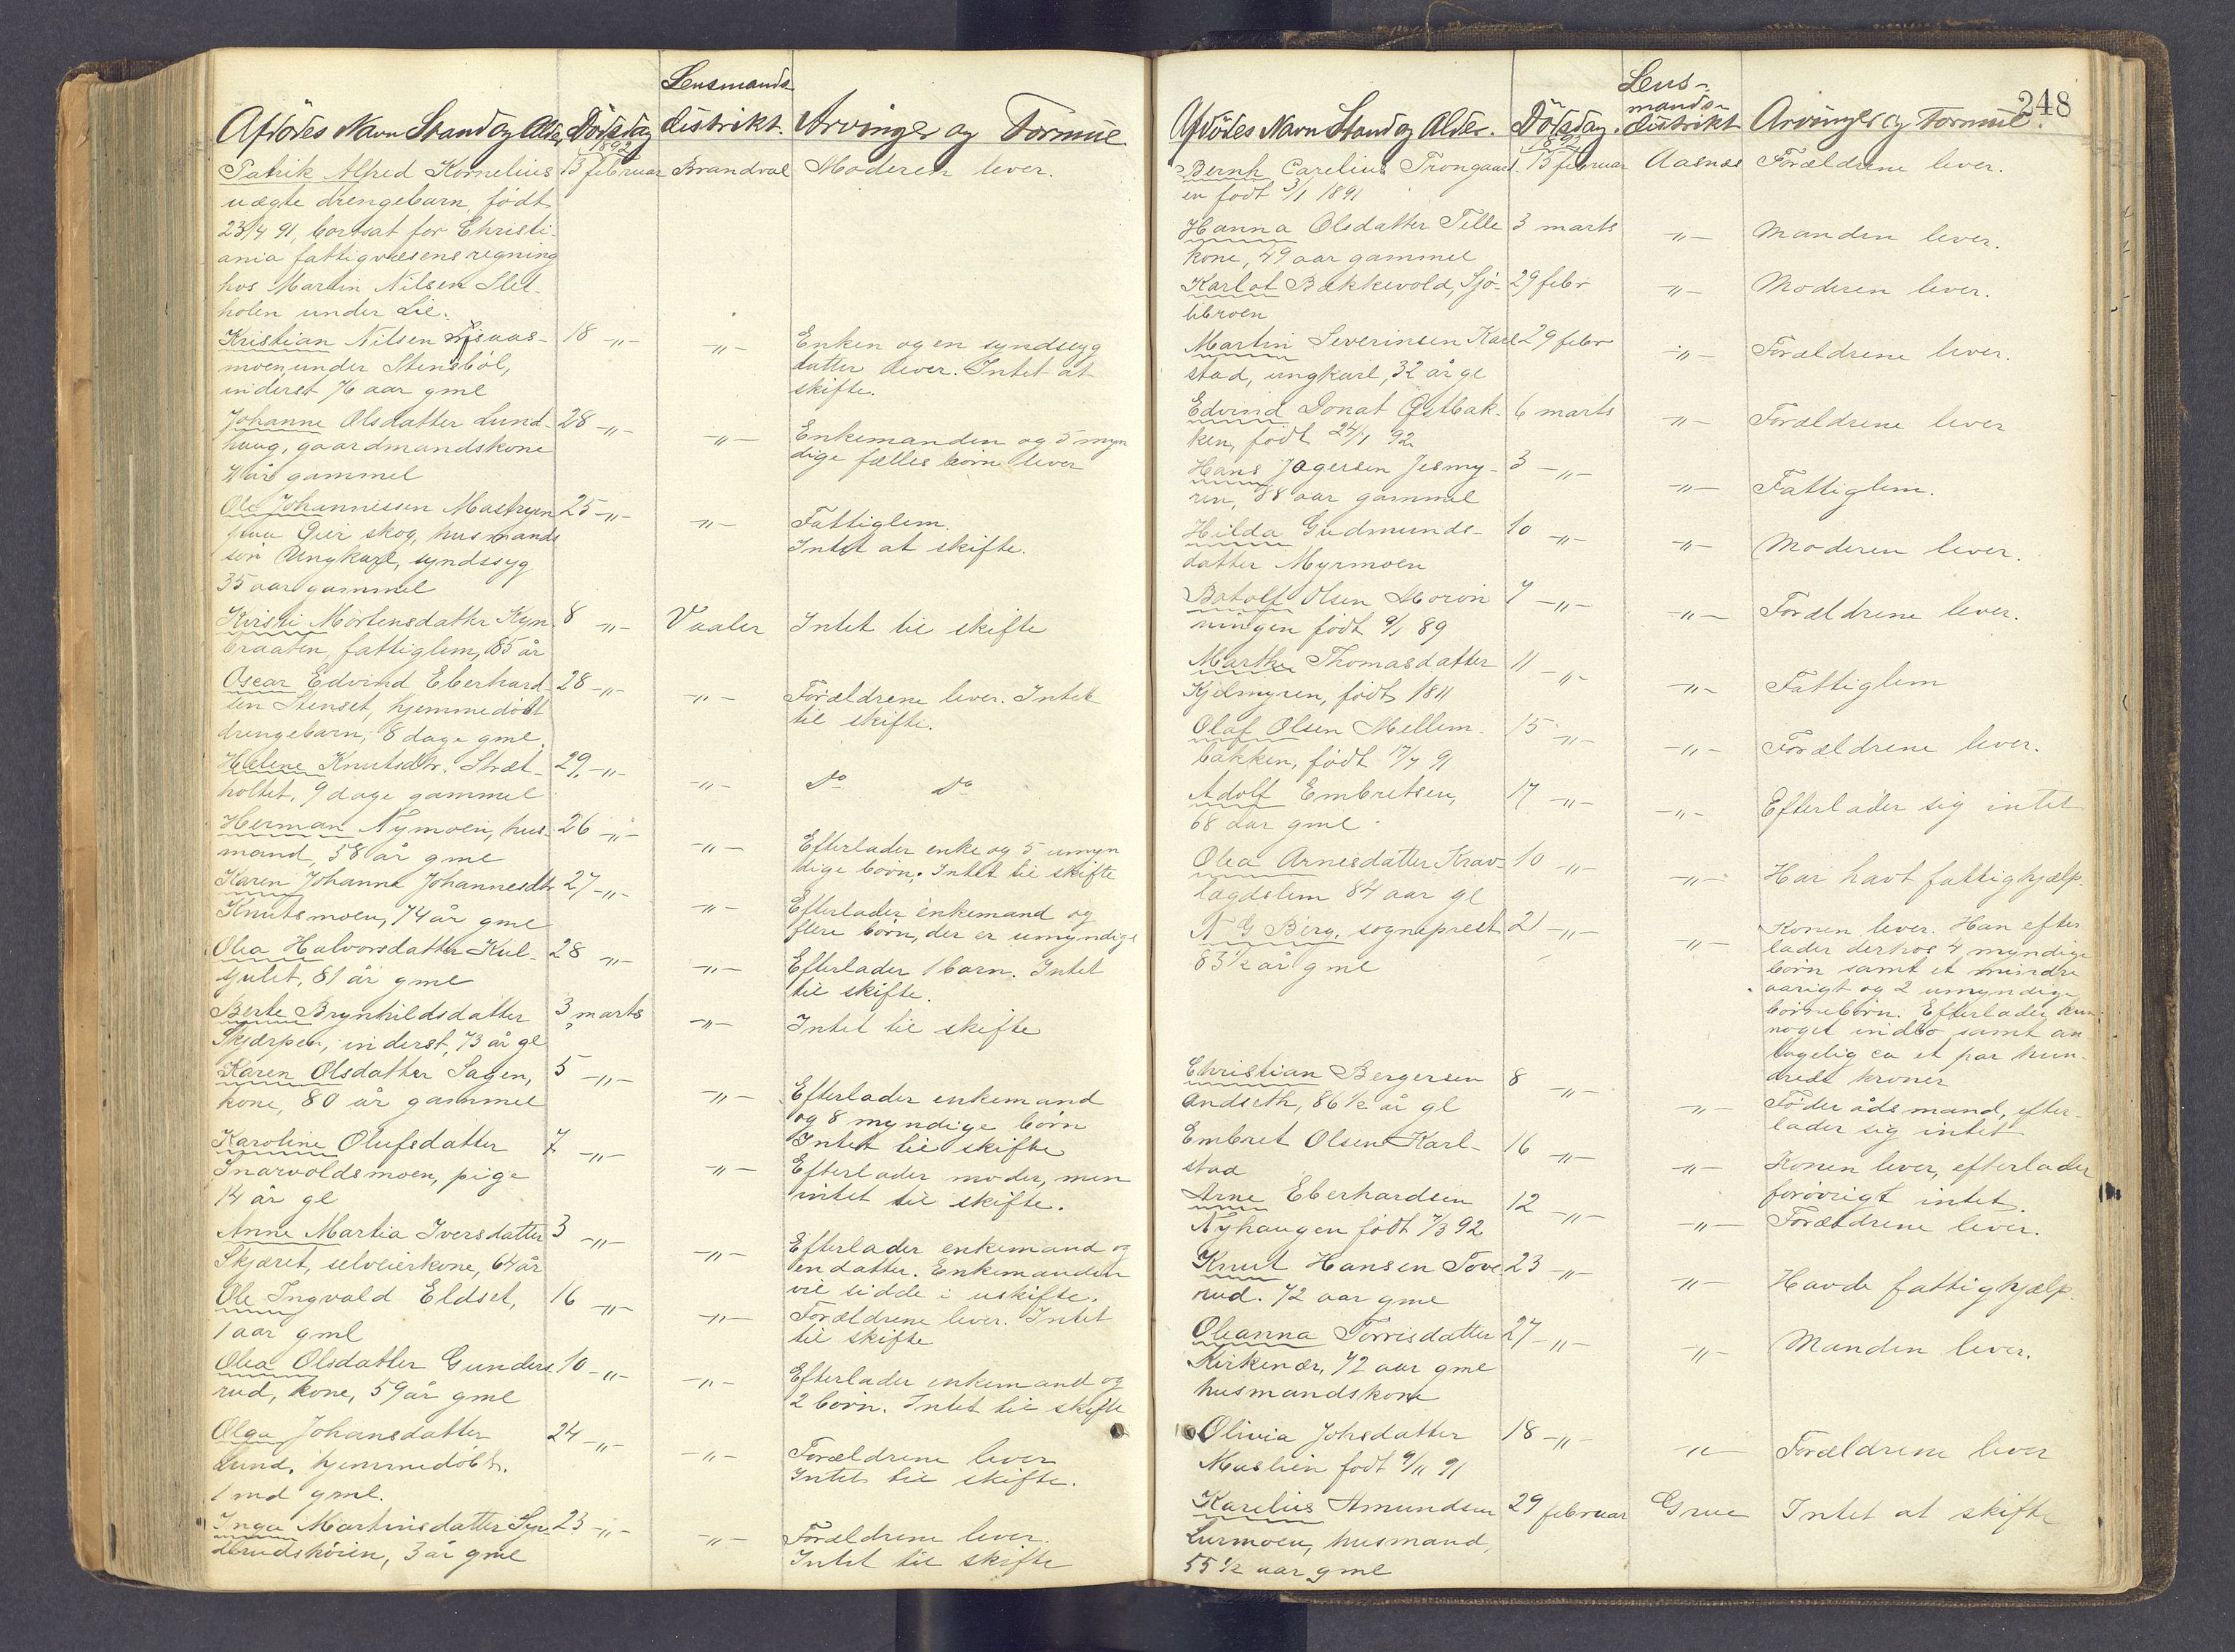 Lensmands
Afdødes Navn Stand og Alder Dødsdag distrikt. Arvinger og Formue.
1892
Patrik Alfred Kornelius 13 februar Brandval Moderen lever.
uægte drengebarn, født
23/4 91, bortsat for Christi-
ania fattigvæsens regning
hos Martin Nilsen
holen under Lie.
Kristian Nilsen 18 -"- -"- Enken og en syndssyg
moen, under Stensbøl, datter lever. Intet at
inderst 76 aar gml skifte.
Johanne Olsdatter Lund- 28 -"- -"- Enkemanden og 5 myn
haug, gaardmandskone dige fælles børn lever
år gammel
Ole Johannessen 25 -"- -"- Fattiglem.
skog, husmands Intet at skifte.
søn Ungkarl, syndssyg
35 aar gammel
Kirsti Mortensdatter Kyn- 8 -"- Vaaler Intet til skifte
braaten, fattiglem, 85 år
Oscar Edvind Eberhard- 28 -"- -"- Forældrene lever. Intet
sen Stenset, hjemmedøbt til skifte.
drengebarn, 8 dage gml.
Helene Knutsdtr. Stræt- 29. -"- -"- do do
holtet, 9 dage gammel
Herman Nymoen, hus- 26 -"- -"- Efterlader enke og 5 umyn
mand, 58 år gml dige børn. Intet til skifte
Karen Johanne Johannesdtr 27 -"- -"- Efterlader enkemand og
Knutsmoen, 74 år gml flere børn, der er umyndige
Olea Halvorsdatter Kul- 28 -"- -"- Efterlader 1 barn. Intet
81 år gml til skifte.
Berte Brynhildsdatter 3 marts -"- Intet til skifte
Skjærpen, inderst, 73 år gl
Karen Olsdatter Sagen, 5 -"- -"- Efterlader enkemand
kone, 80 år gammel og 8 myndige børn
Intet til skifte
Karoline Olufsdatter 7 -"- -"- Efterlader moder, men
Snarvoldsmoen, pige intet til skifte.
14 år gl
Anne Martia Iversdatter 3 -"- -"- Efterlader enkemand og
Skjæret, selveierkone, 64 år en datter. Enkemanden
vil sidde i uskifte.
Ole Ingvald Eldset, 16 -"- -"- Forældrene lever. Intet
1 aar gml til skifte
Olea Olsdatter Gunders- 10 -"- -"- Efterlader enkemand og
rud, kone, 59 år gml 2 børn. Intet til skifte
Olga Johansdatter 24 -"- -"- Forældrene lever
Lund, hjemmedøbt. Intet til skifte.
1 md gml.
Inga Martinsdatter 23 -"- -"- Forældrene lever.
3 år gml Intet til skifte
248
Lens-
mands-
Afdødes Navn Stand og Alder. Dødsdag. distrikt Arvinger og Formue.
1892
Bernh Carelius Trongaard- 13 februar Aasnes Forældrene lever.
en født 3/1 1891
Hanna Olsdatter Telle 3 marts -"- Manden lever.
kone, 49 aar gammel
Karlot Bakkevold, Sjø- 29 febr -"- Moderen lever.
libroen
Martin Severinsen Karl- 29 febr -"- Forældrene lever.
stad, ungkarl, 32 år gl
Edvind Donat Østbak- 6 marts -"- Forældrene lever
ken, født 24/1 92
Hans Jogersen Jesmy- 3 -"- -"- Fattiglem.
ren, 88 aar gammel
Hilda Gudmunds- 10 -"- -"- Moderen lever.
datter Myrmoen
Botolf Olsen 7 -"- -"- Forældrene lever.
ningen født 9/1 89
Marthe Thomasdatter 11 -"- -"- Fattiglem
Kjelmyren, født 1811
Olaf Olsen Mellem- 15 -"- -"- Forældrene lever.
bakken, født 17/7 91
Adolf Embretsen, 17 -"- -"- Efterlader sig intet
68 aar gml
Olea Arnesdatter Krav- 10 -"- -"- Har havt fattighjælp.
lægdslem 84 aar gl
N G Berg, sogneprest 2 -"- -"- Konen lever. Han efter
83 1/2 år gml lader derhos 4 myndige
børn samt et mindre
aarigt og 2 umyndige
børnebørn. Efterlader kun
noget indbo samt an-
tagelig ca et par hun-
drede kroner
Christian Bergersen 8 -"- -"- Føderådsmand, efter-
Andseth, 86 1/2 år gl lader sig intet
Embret Olsen Karl- 16 -"- -"- Konen lever, efterlader
stad forøvrigt intet.
Arne Eberhardsen 12 -"- -"- Forældrene lever.
Nyhaugen født 7/3 92
Knut Hansen Tove- 23 -"- -"- Havde fattighjælp.
rud. 72 aar gml
Oleanna Torrisdatter 27 -"- -"- Manden lever.
Kirkenær, 72 aar gml
husmandskone
Olivia Johsdatter 18 -"- -"- Forældrene lever
Maslien født 9/11 91
Karelius Amundsen 29 februar Grue Intet at skifte
Lurmoen, husmand,
55 1/2 aar gml